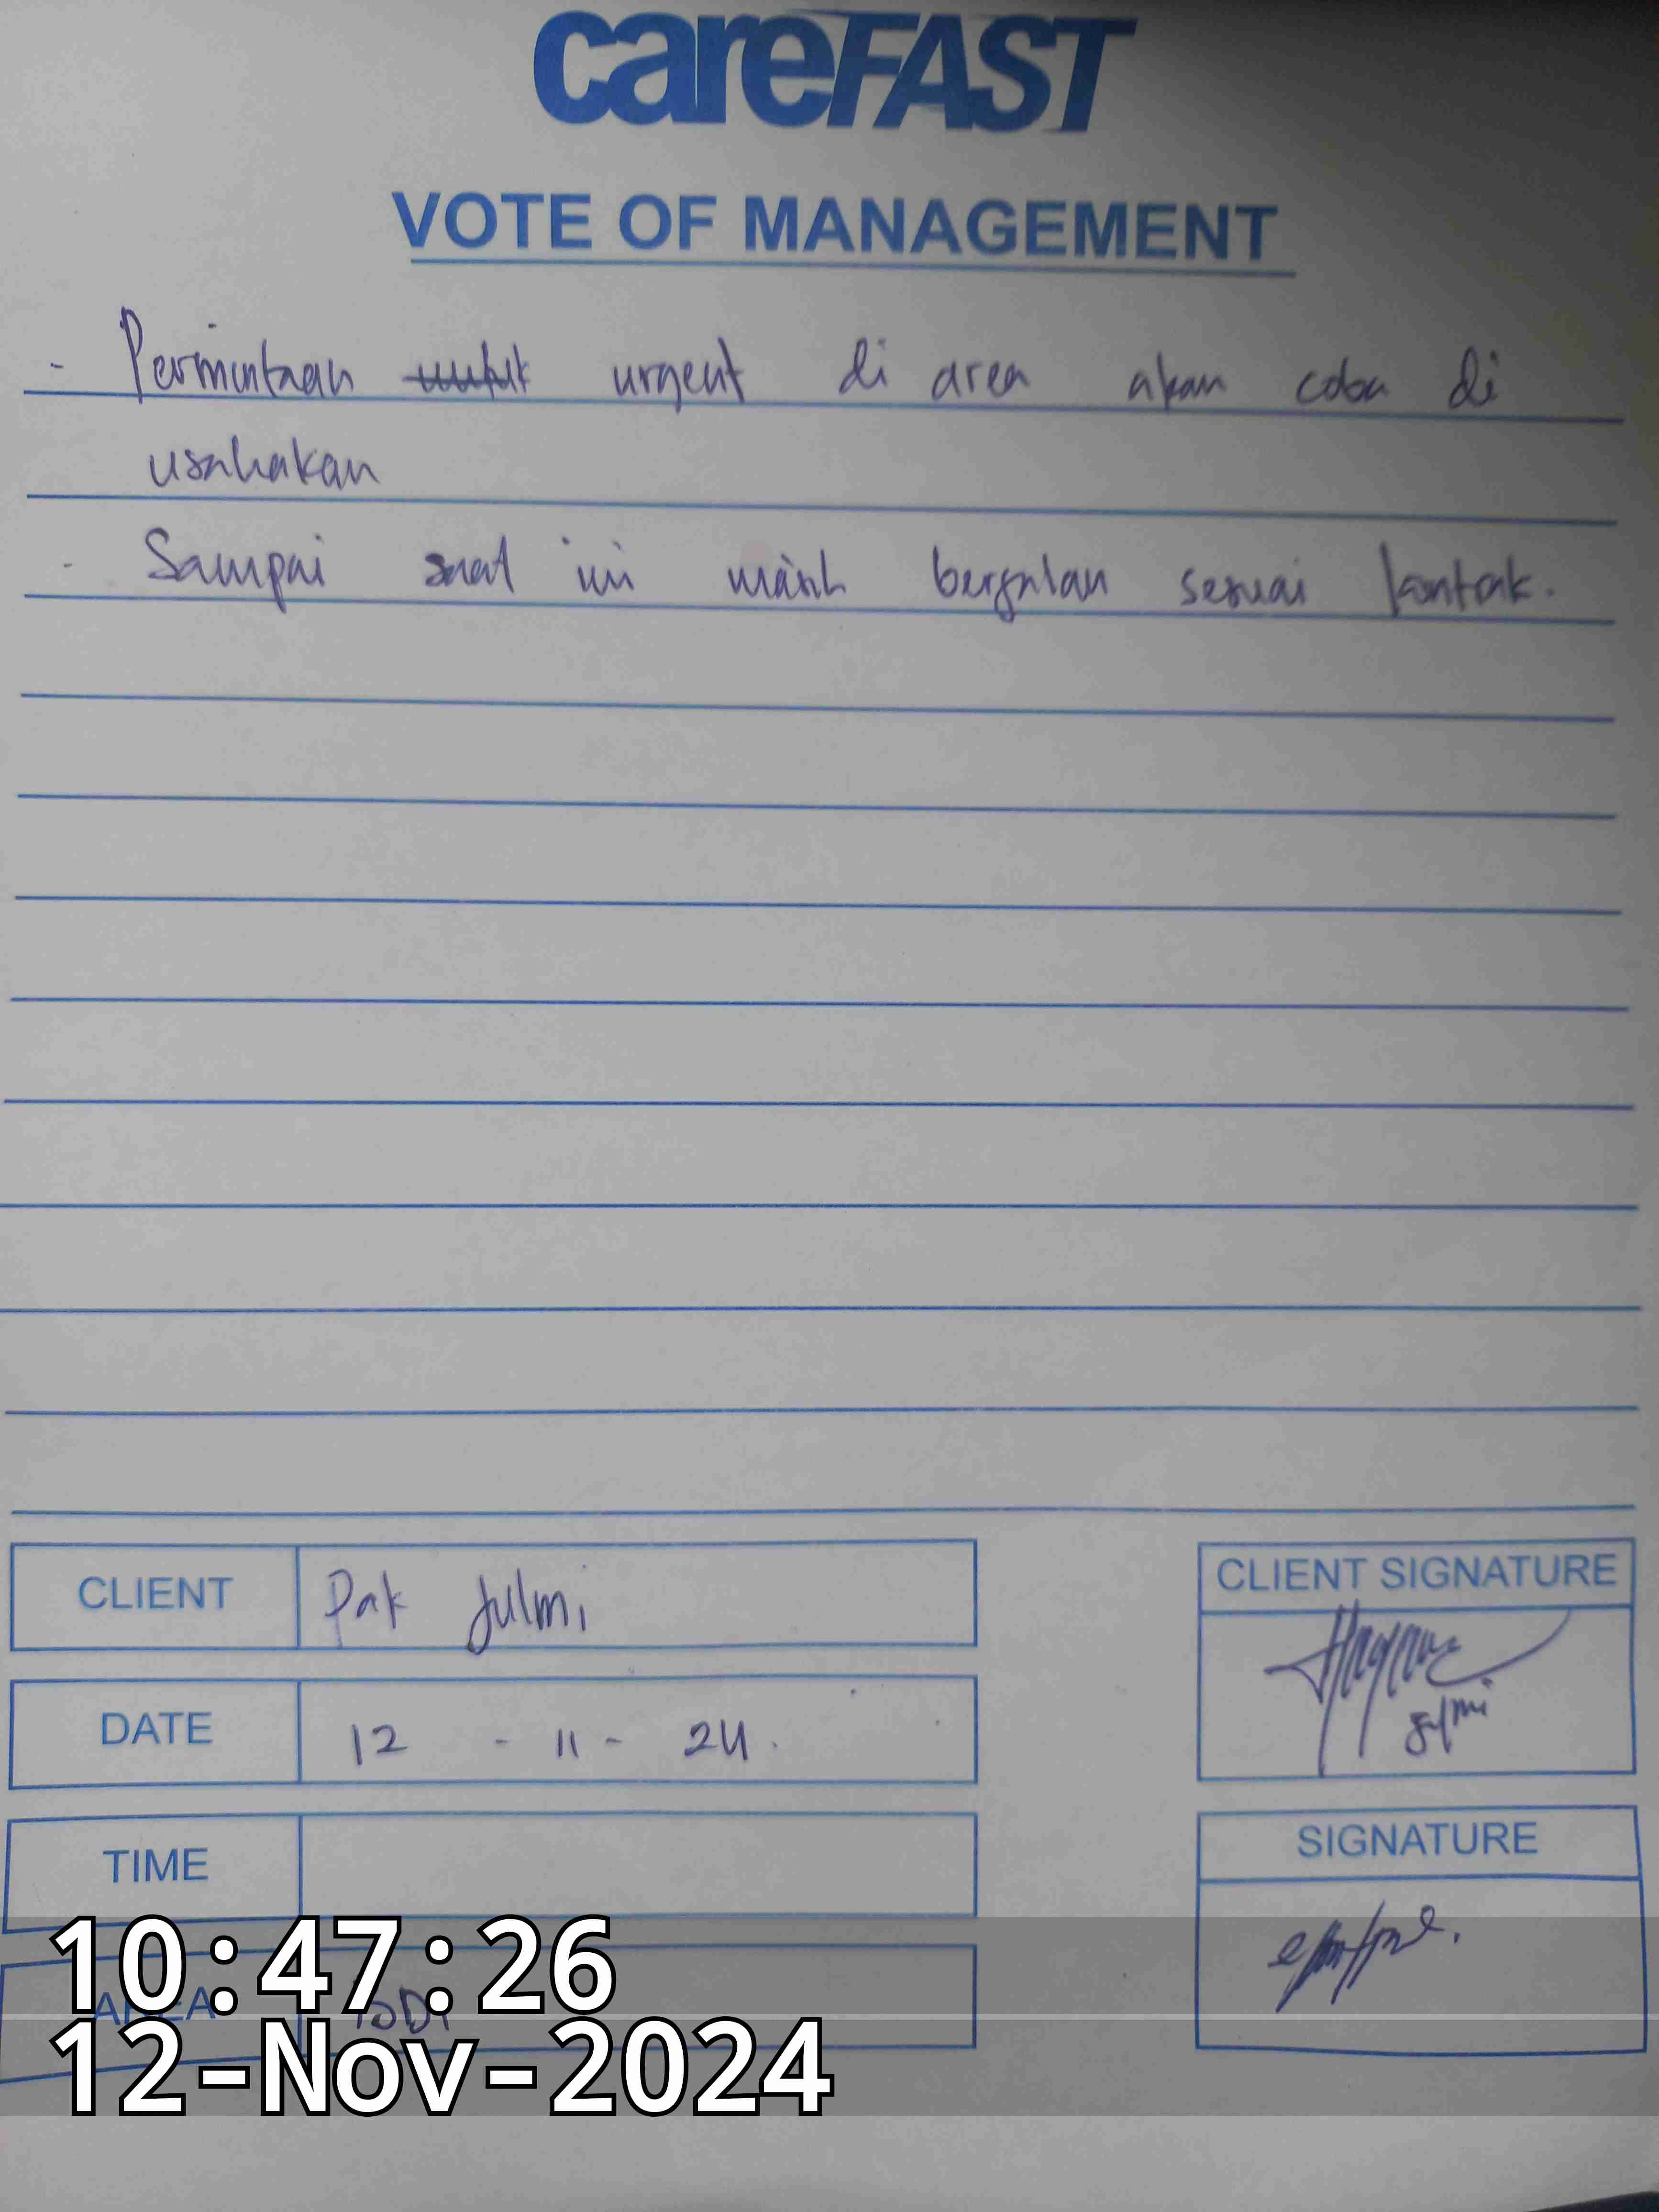 careFAST
VOTE OF MANAGEMENT
- Permintaan urgent di area akan coba di
usahakan
- Sampai saat ini masih berjalan sesuai kontrak.
CLIENT Pak Julmi
CLIENT SIGNATURE
DATE 12 - 11 - 24.
TIME
SIGNATURE
AREA
10:47:26
12-Nov-2024